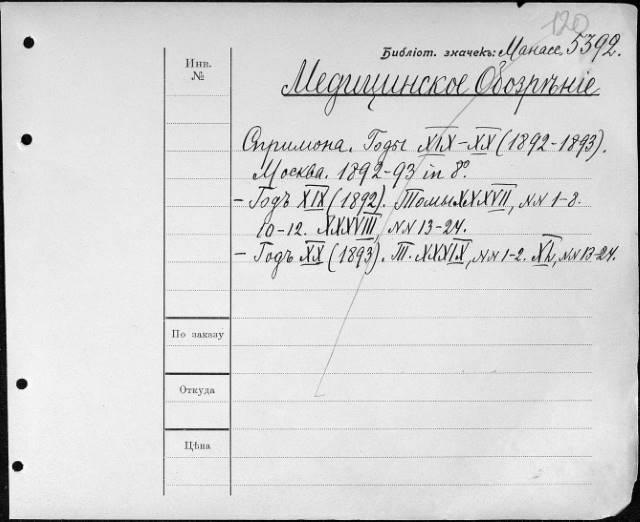 120
Библіот. значекъ: Манасс. 5392.
Инв.
№
Медицинское Обозрѣніе
Спримона. Годы XIX-XX (1892-1893).
Москва. 1892-93 in 8º.
- Годъ XIX (1892). Томы XXXVII, NN 1-8.
10-12. XXXVIII, NN 13-24.
- Годъ XX (1893). Т. XXXIX, NN 1-2. XL, NN 13-24.
По заказу
Откуда
Цѣна